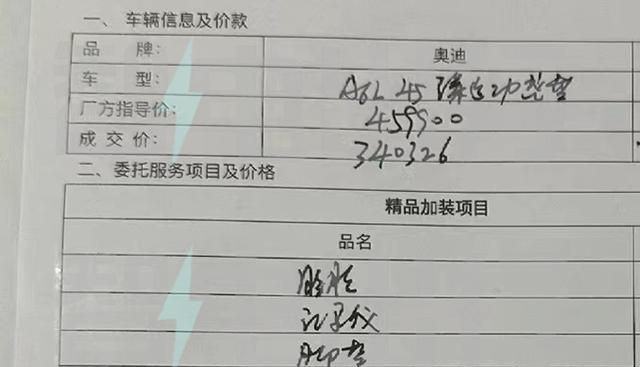 一、车辆信息及价款
品 牌： 奥迪
车 型： A6L 45 臻选动感型
厂方指导价： 459900
成 交 价： 340326
二、委托服务项目及价格
精品加装项目
品名
记录仪
脚垫